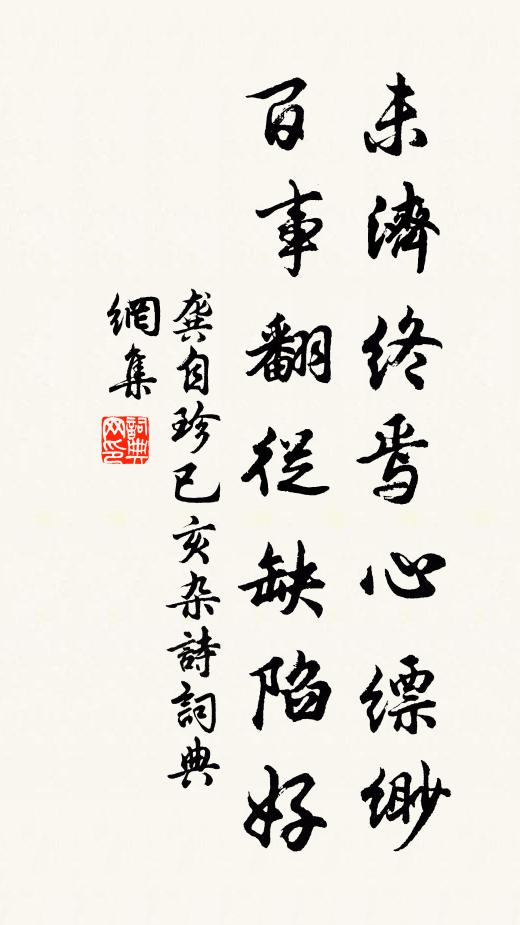 未濟終焉心縹緲
百事翻從缺陷好
龔自珍己亥杂詩詞典
網集
詞典
网印